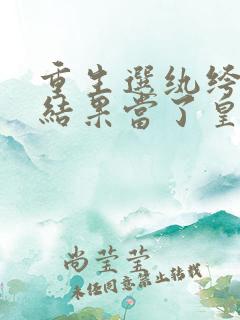 重生選紈绔
結果當了皇
尚莹莹
未经同意禁止转载